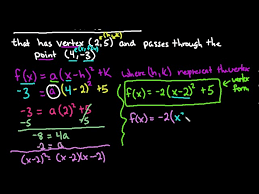 that has vertex (2,5) and passes through the
point (4,-3)
f(x) = a(x-h)²+K where (h,k) represent the vertex
-3 = a(4-2)²+5
f(x) = -2(x-2)² + 5
vertex form
-3 = a(2)²+5
-5 -5
f(x) = -2(x²
-8 = 4a
-2 = a
(x-2)² = (x-2)(x-2)